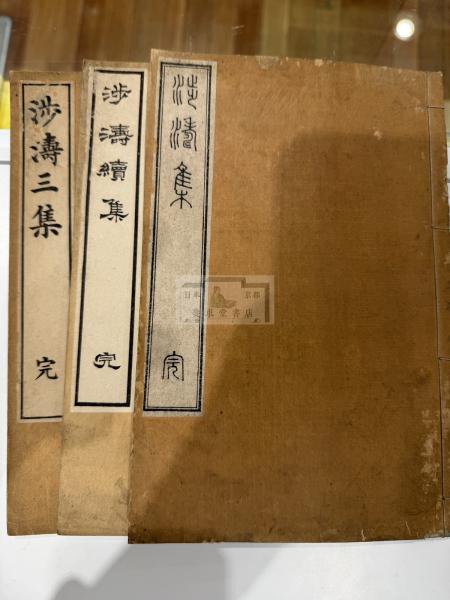 涉濤集
完
涉濤續集
完
涉濤三集
完
日本 京都
堂書店